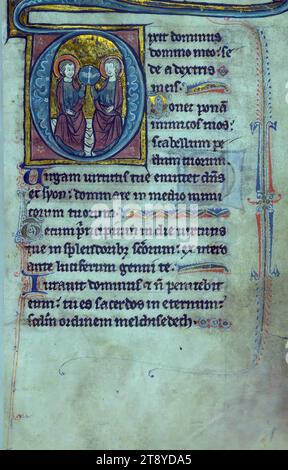 Dixit dominus
domino meo: se
de a dextris
meis.
Donec ponã
inimicos tuos:
scabellum pe
dum tuorum.
Uirgam uirtutis tue emittet dñs
ex syon: dominare in medio inimi
corum tuorum.
Tecum prĩcipium in die uirtutis
tue in splendoribꝫ sc̃orum: ex utero
ante luciferum genui te.
Iurauit dominus et ñ penitebit
eum: tu es sacerdos in eternum
scđm ordinem melchisedech.
alamy
Image ID: 2T8YDA5
www.alamy.com